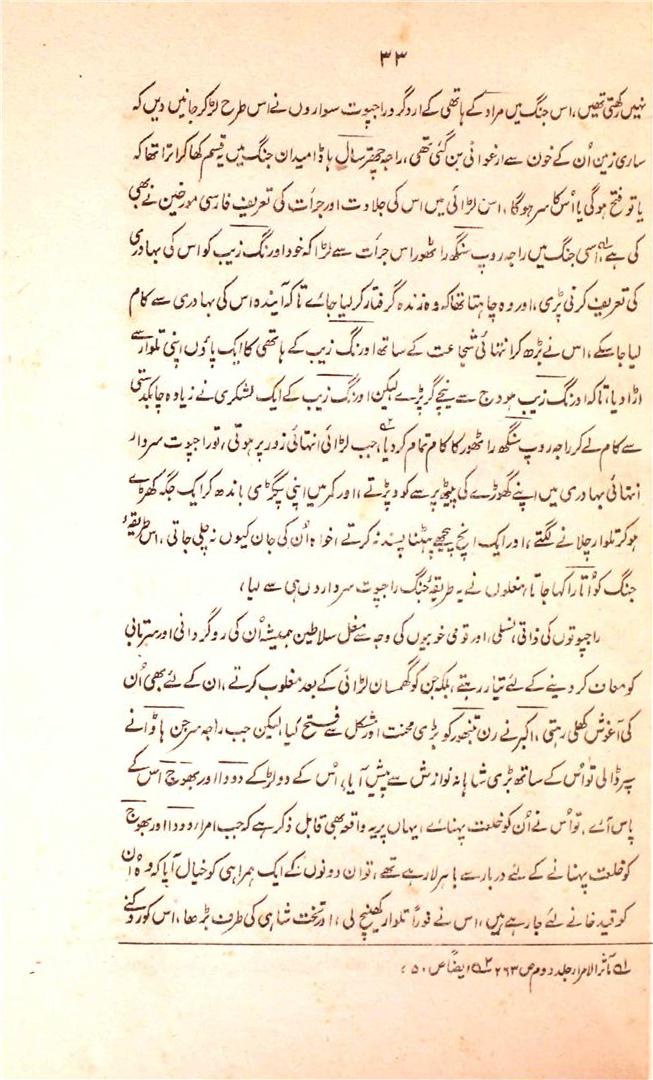 ۳۳
نہیں رکھتی تھیں، اس جنگ میں مراد کے ہاتھی کے ارد گرد راجپوت سواروں نے اس طرح لڑ کر جانیں دیں کہ
ساری زمین اُن کے خون سے ارغوانی بن گئی تھی، راجہ چھتر سال ہاڈا میدان جنگ میں یہ قسم کھا کر اترا تھا کہ
یا تو فتح ہوگی یا اُس کا سر ہوگا، اس لڑائی میں اس کی جلادت اور جرأت کی تعریف فارسی مورخین نے بھی
کی ہے، اسی جنگ میں راجہ روپ سنگھ راٹھور اس جرأت سے لڑا کہ خود اورنگ زیب کو اس کی بہادری
کی تعریف کرنی پڑی، اور وہ چاہتا تھا کہ وہ زندہ گرفتار کر لیا جائے تاکہ آیندہ اس کی بہادری سے کام
لیا جاسکے، اس نے بڑھ کر انتہائی شجاعت کے ساتھ اورنگ زیب کے ہاتھی کا ایک پاؤں اپنی تلوار سے
اڑا دیا، تاکہ اورنگ زیب ہودج سے نیچے گر پڑے لیکن اورنگ زیب کے ایک لشکری نے زیادہ چابکدستی
سے کام لے کر راجہ روپ سنگھ راٹھور کا کام تمام کر دیا،۲؎ جب لڑائی انتہائی زور پر ہوتی، تو راجپوت سردار
انتہائی بہادری میں اپنے گھوڑے کی پیٹھ پر سے کود پڑتے، اور کمر میں اپنی پگڑی باندھ کر ایک جگہ کھڑے
ہو کر تلوار چلانے لگتے، اور ایک انچ پیچھے ہٹنا پسند نہ کرتے، خواہ اُن کی جان کیوں نہ چلی جاتی، اس طریقۂ
جنگ کو اُتارا کہا جاتا، مغلوں نے یہ طریقۂ جنگ راجپوت سرداروں ہی سے لیا،
راجپوتوں کی ذاتی، نسلی، اور قومی خوبیوں کی وجہ سے مغل سلاطین ہمیشہ اُن کی روگردانی اور سرتابی
کو معاف کر دینے کے لئے تیار رہتے، بلکہ جن کو گھمسان لڑائی کے بعد مغلوب کرتے، ان کے لئے بھی اُن
کی آغوش کھلی رہتی، اکبر نے رن تنبھور کو بڑی محنت اور مشکل سے فتح کیا لیکن جب راجہ سرجن ہاڈا نے
سپر ڈالی تو اُس کے ساتھ بڑی شاہانہ نوازش سے پیش آیا، اُس کے دو لڑکے دودا اور بھوج اس کے
پاس آئے، تو اُس نے اُن کو خلعت پہنائے، یہاں پر یہ واقعہ بھی قابل ذکر ہے کہ جب امراء دودا اور بھوج
کو خلعت پہنانے کے لئے دربار سے باہر لا رہے تھے، تو ان دونوں کے ایک ہمراہی کو خیال آیا کہ وہ اُن
کو قید خانے لئے جا رہے ہیں، اس نے فوراً تلوار کھینچ لی، اور تخت شاہی کی طرف بڑھا، اس کو روکنے
۱؎ مآثر الامراء جلد دوم ص ۲۶۳ ۲؎ ایضاً ص ۵۰،